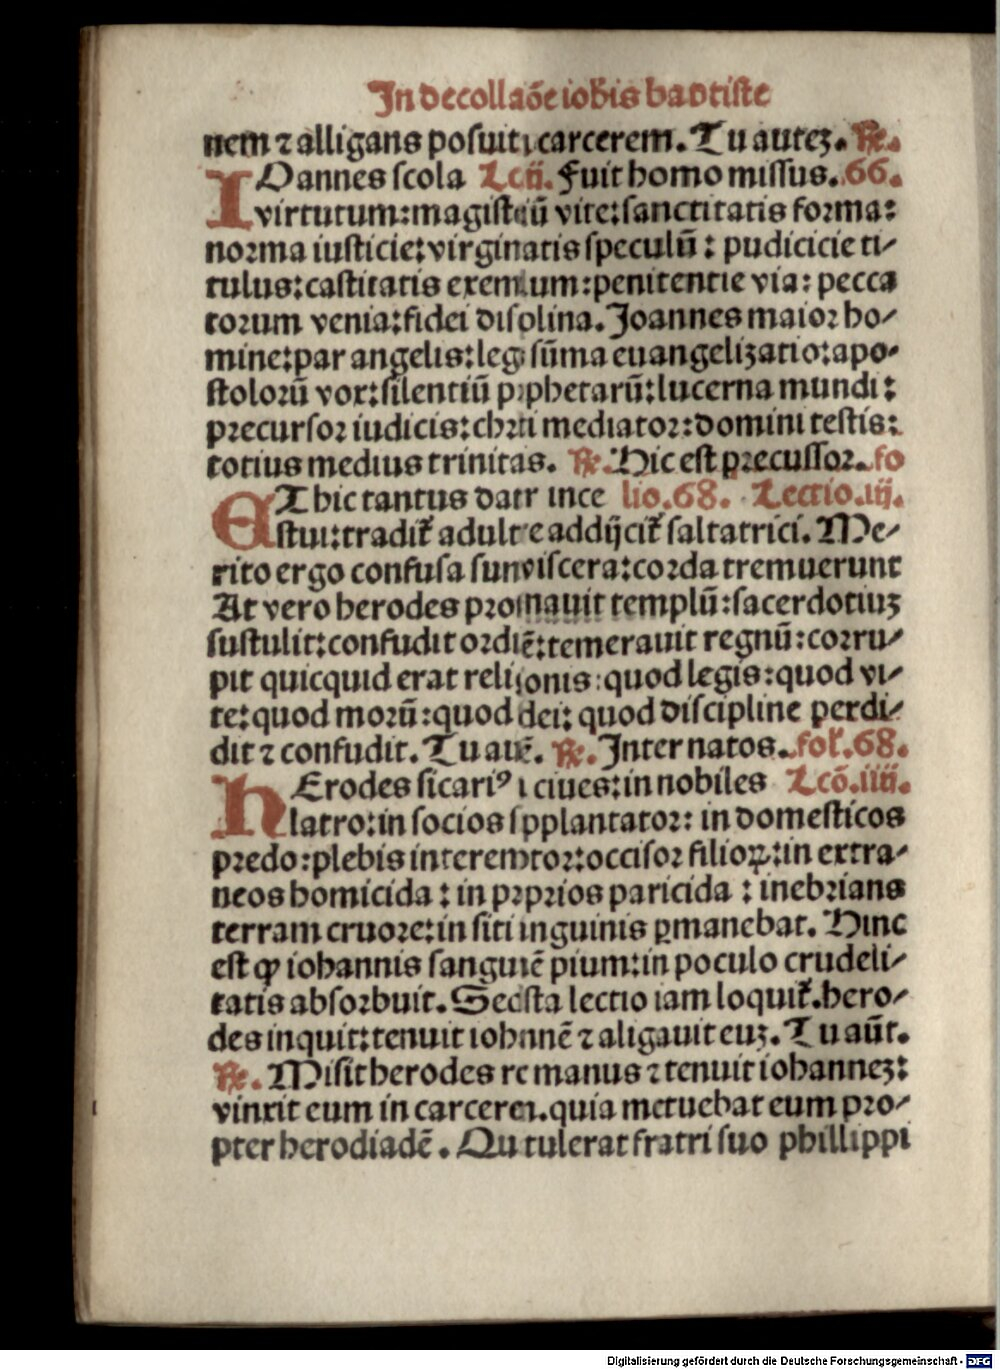 In decollaõe iohis baptiste
nem ⁊ alligans posuit i carcerem. Tu autez. ℟.
IOannes scola Lcō.ij. Fuit homo missus. 66.
virtutum: magisteriū vite: sanctitatis forma:
norma iusticie: virginitatis speculū: pudicicie ti⸗
tulus: castitatis exemplum: penitentie via: pecca
torum venia: fidei disciplina. Joannes maior ho⸗
mine: par angelis: legis sūma euangelizatio: apo⸗
stolorū vox: silentiū prophetarū: lucerna mundi:
precursor iudicis: christi mediator: domini testis:
totius medius trinitas. ℟. Hic est precussor. fo
ET hic tantus datr ince lio.68. Lectio.iij.
stui: tradit̃ adultere addijcit̃ saltatrici. Me⸗
rito ergo confusa sunt viscera: corda tremuerunt
At vero herodes prophanauit templū: sacerdotiuz
sustulit: confudit ordinē: temerauit regnū: corru⸗
pit quicquid erat religionis: quod legis: quod vi⸗
te: quod morū: quod dei: quod discipline perdi⸗
dit ⁊ confudit. Tu autē. ℟. Inter natos. fol̃.68.
HErodes sicariꝰ i ciues: in nobiles Lcō.iiij.
latro: in socios supplantator: in domesticos
predo: plebis interemtor: occisor filioꝝ: in extra⸗
neos homicida: in proprios paricida: inebrians
terram cruore: in siti inguinis ꝑmanebat. Hinc
est ꝙ iohannis sanguinē pium: in poculo crudeli⸗
tatis absorbuit. Sed ista lectio iam loquit̃. hero⸗
des inquit: tenuit iohannē ⁊ aligauit euz. Tu aūt.
℟. Misit herodes rex manus ⁊ tenuit iohannez:
vinxit eum in carcerem. quia metuebat eum pro⸗
pter herodiadē. Quā tulerat fratri suo phillippi
Digitalisierung gefördert durch die Deutsche Forschungsgemeinschaft - DFG